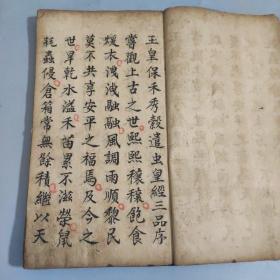 玉皇保禾秀穀遣虫皇經三品序
嘗觀上古之世熙熙穰穰飽食
煖衣洩洩融融風調雨順黎民
莫不共享安平之福焉及今之
世旱乾水溢禾苗累不滋榮鼠
耗蟲侵倉箱常無餘積繼以天